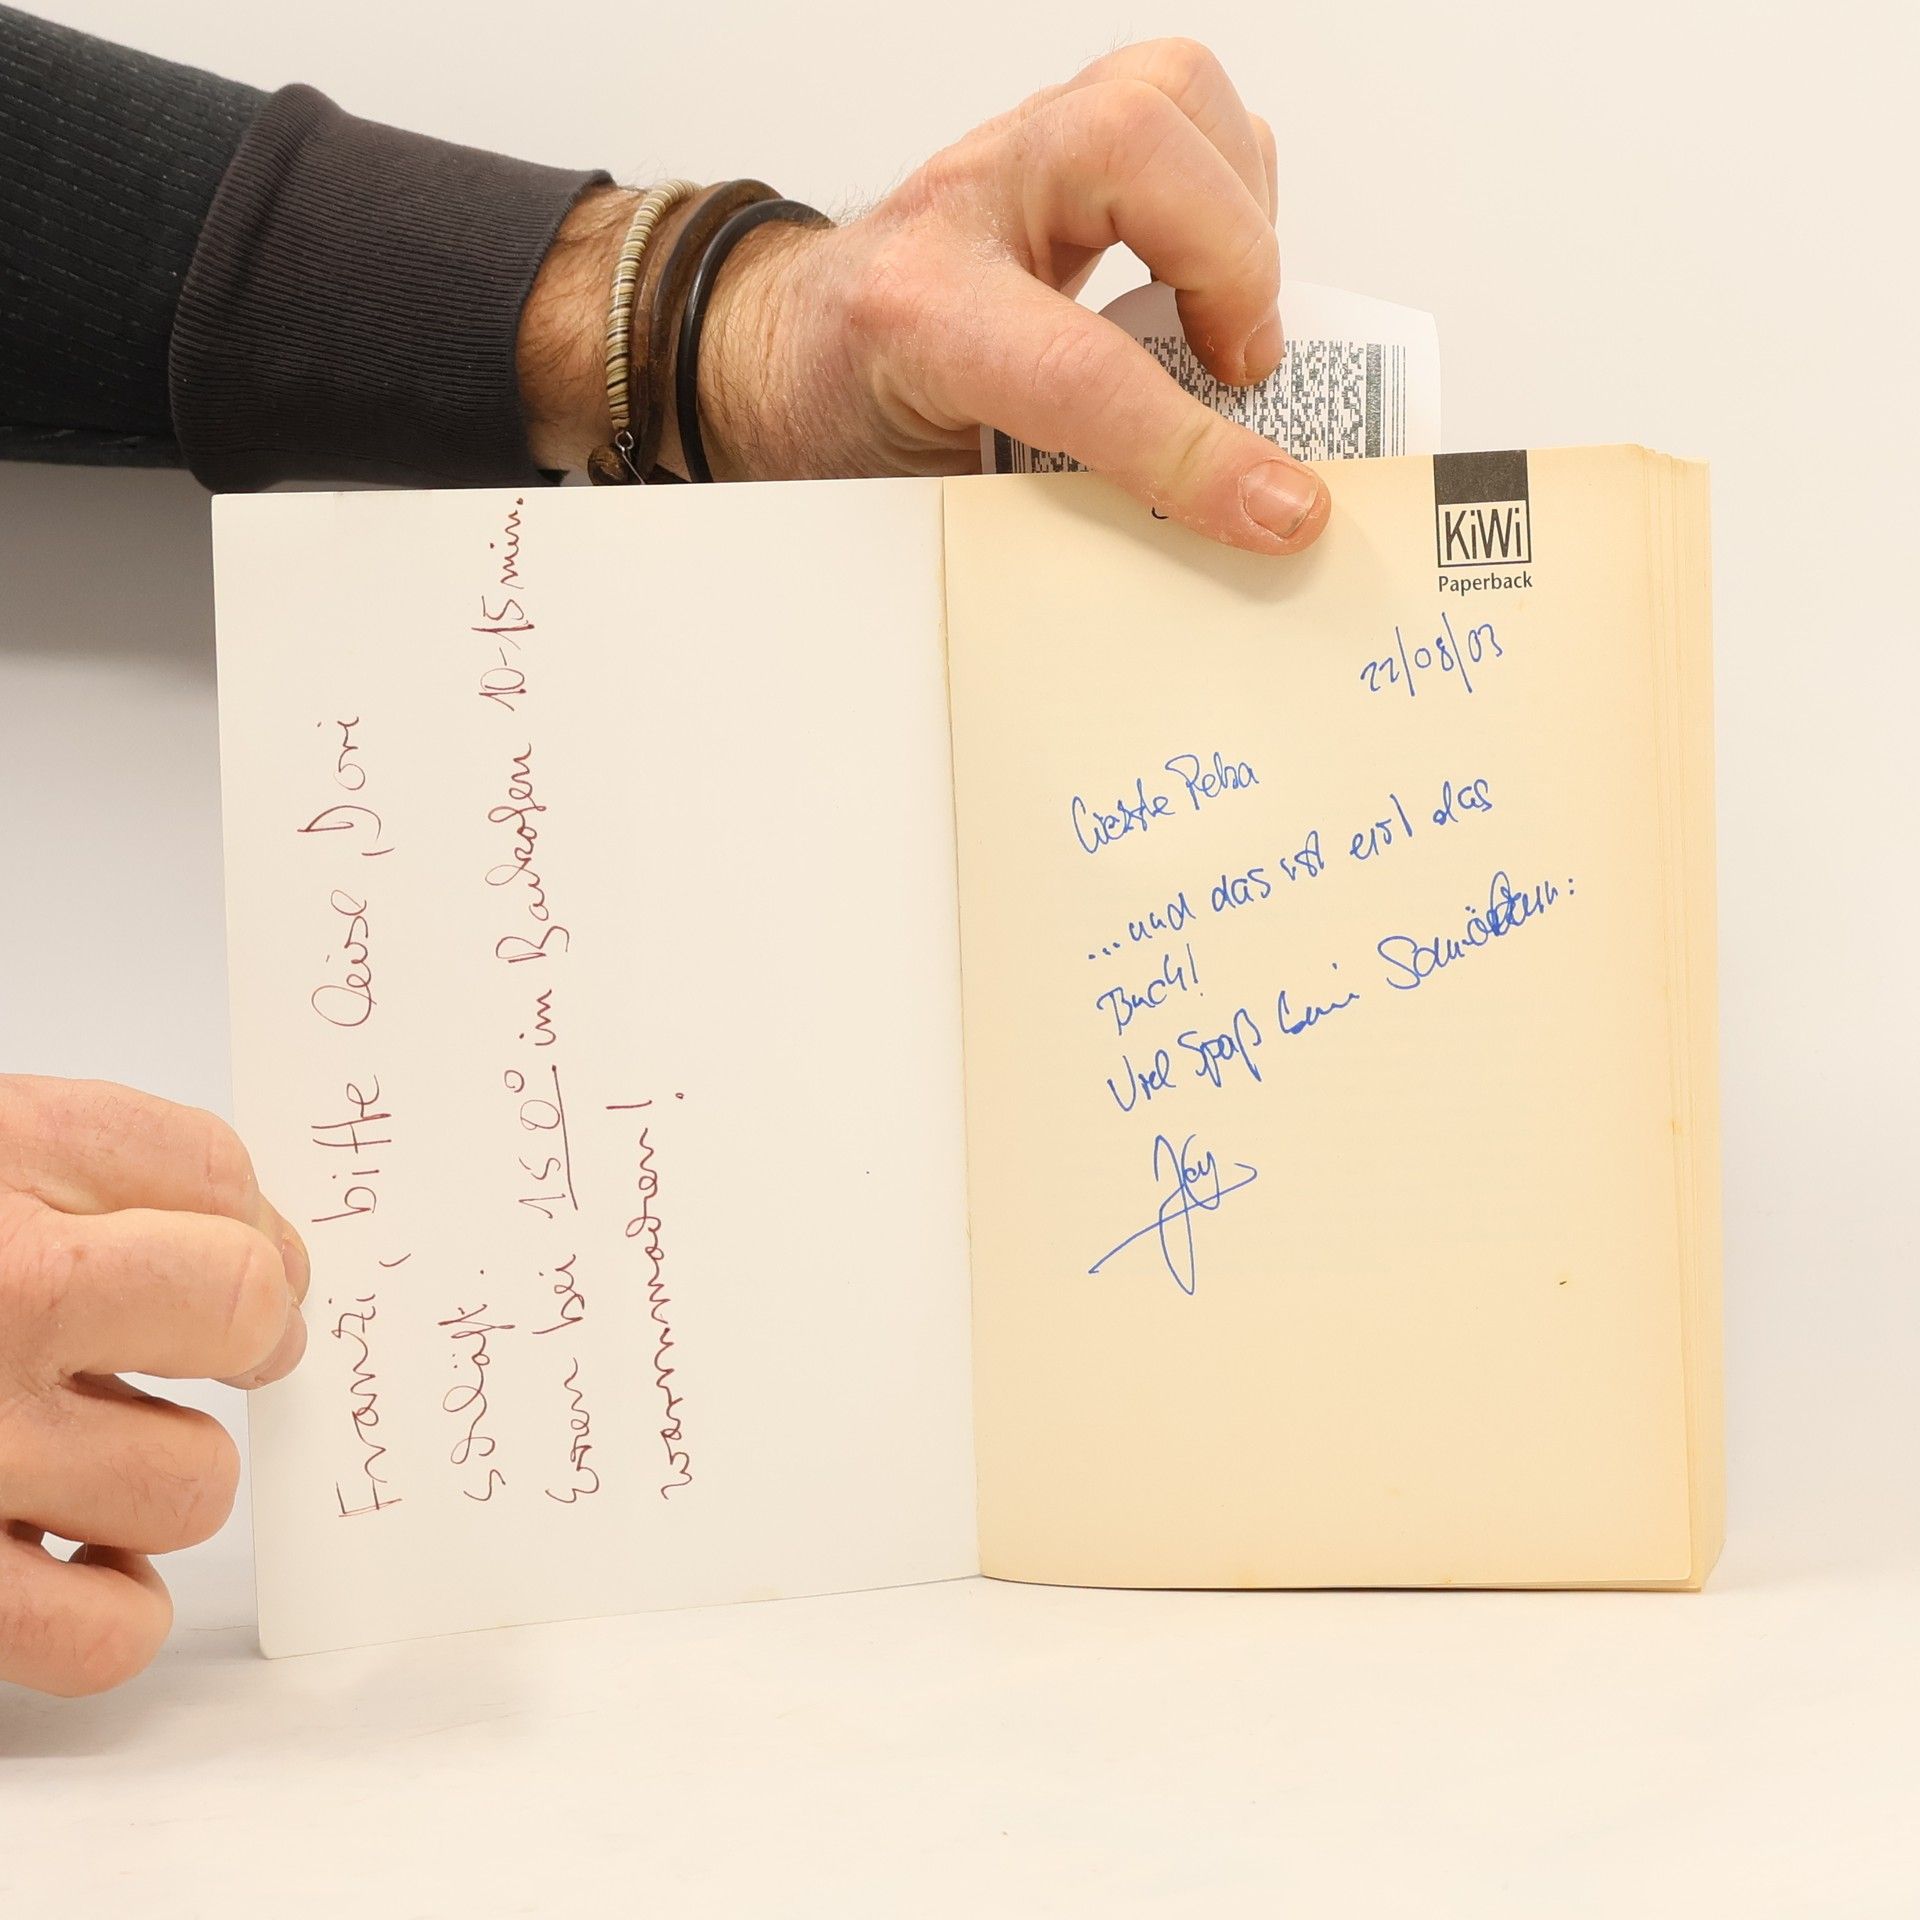 Franzi, bitte leise, Dori
schläft.
Essen bei 150° im Backofen 10-15 min.
warmmachen!
KiWi
Paperback
22/08/03
Liebste Petra
...und das ist erst das
Buch!
Viel Spaß beim Schmökern: